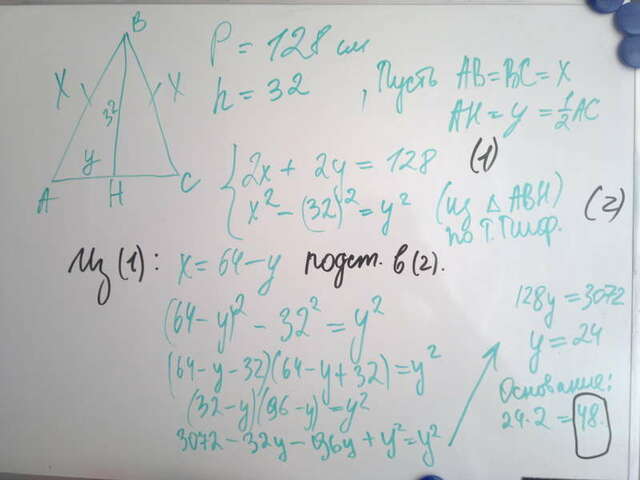 B
P = 128 см
h = 32
, Пусть AB = BC = X
AH = y = 1/2 AC
X
X
32
y
A
H
C
{ 2x + 2y = 128 (1)
x² - (32)² = y² (из △ ABH) (2)
по Т. Пиф.
Из (1): x = 64 - y подст. в (2).
(64 - y)² - 32² = y²
(64 - y - 32)(64 - y + 32) = y²
(32 - y)(96 - y) = y²
3072 - 32y - 96y + y² = y²
128y = 3072
y = 24
Основание:
24 · 2 = 48.